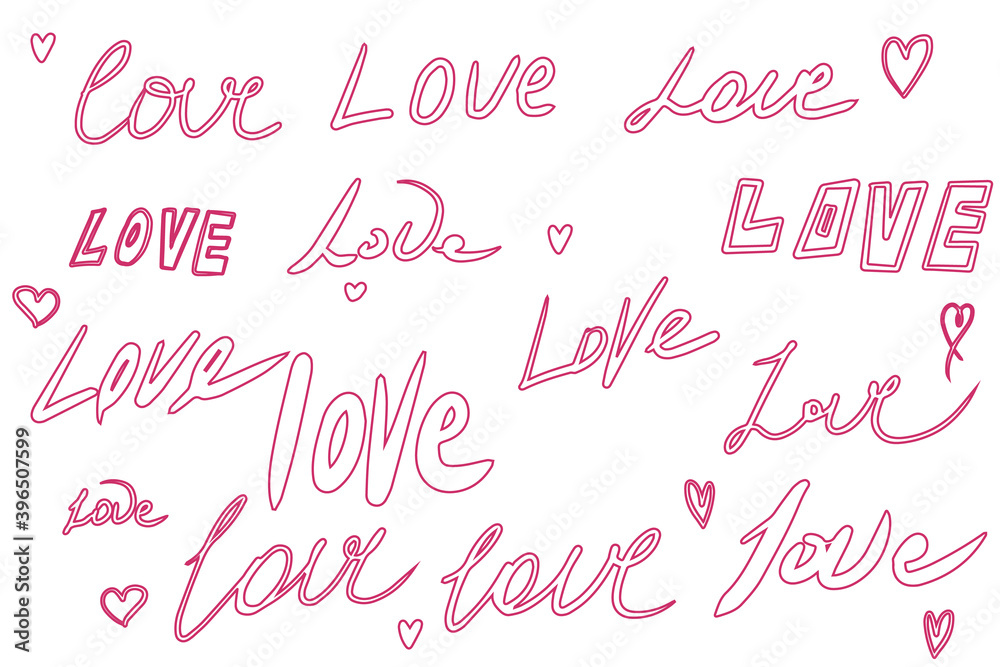 love LOVE Love
LOVE Love LOVE
Love Love
love Love
Love
love love Love
Adobe Stock | #396507599